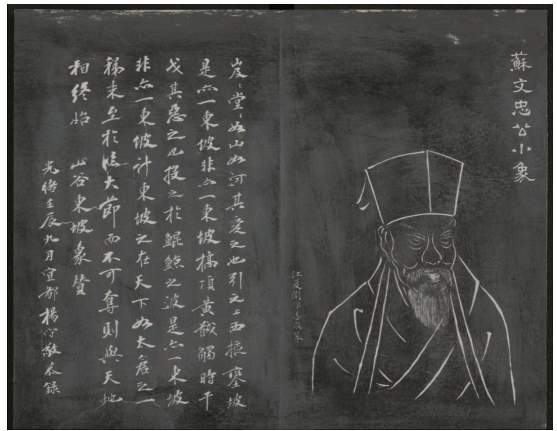 蘇文忠公小象
岌〻堂〻如山如河其愛之也引之上西掖鑾坡
是亦一東坡非亦一東坡槁項黃馘觸時干
戈其惡之也投之於鯤鯨之波是亦一東坡
非亦一東坡計東坡之在天下如太倉之一
稊米至於臨大節而不可奪則與天地
相終始 山谷東坡象贊
光緒壬辰九月宜都楊守敬恭錄